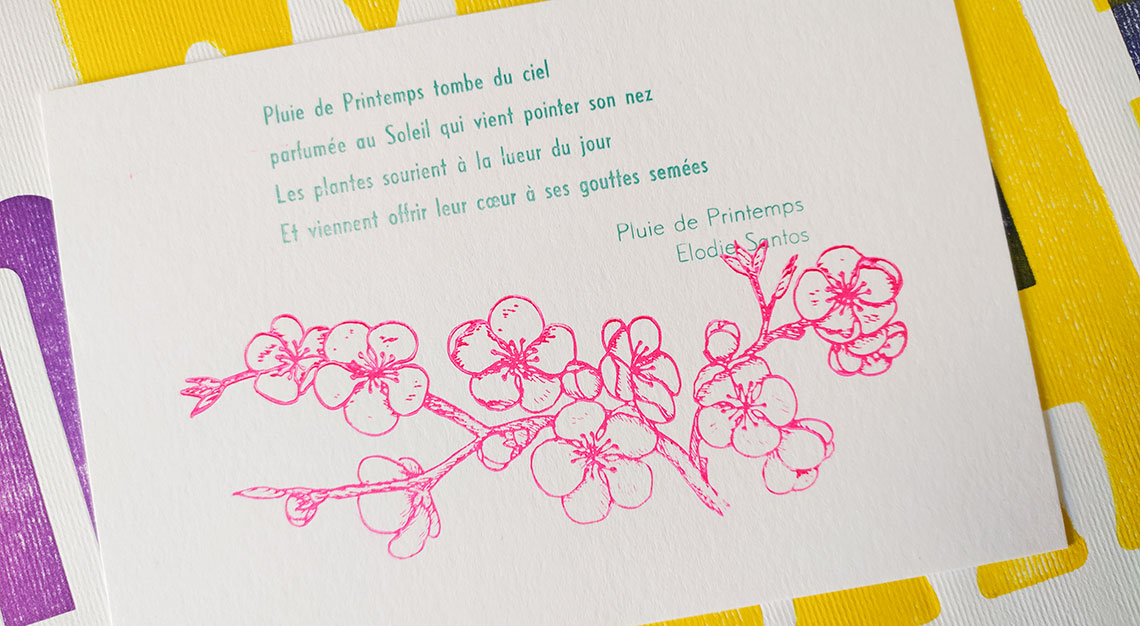 Pluie de Printemps tombe du ciel
parfumée au Soleil qui vient pointer son nez
Les plantes sourient à la lueur du jour
Et viennent offrir leur cœur à ses gouttes semées
Pluie de Printemps
Elodie Santos